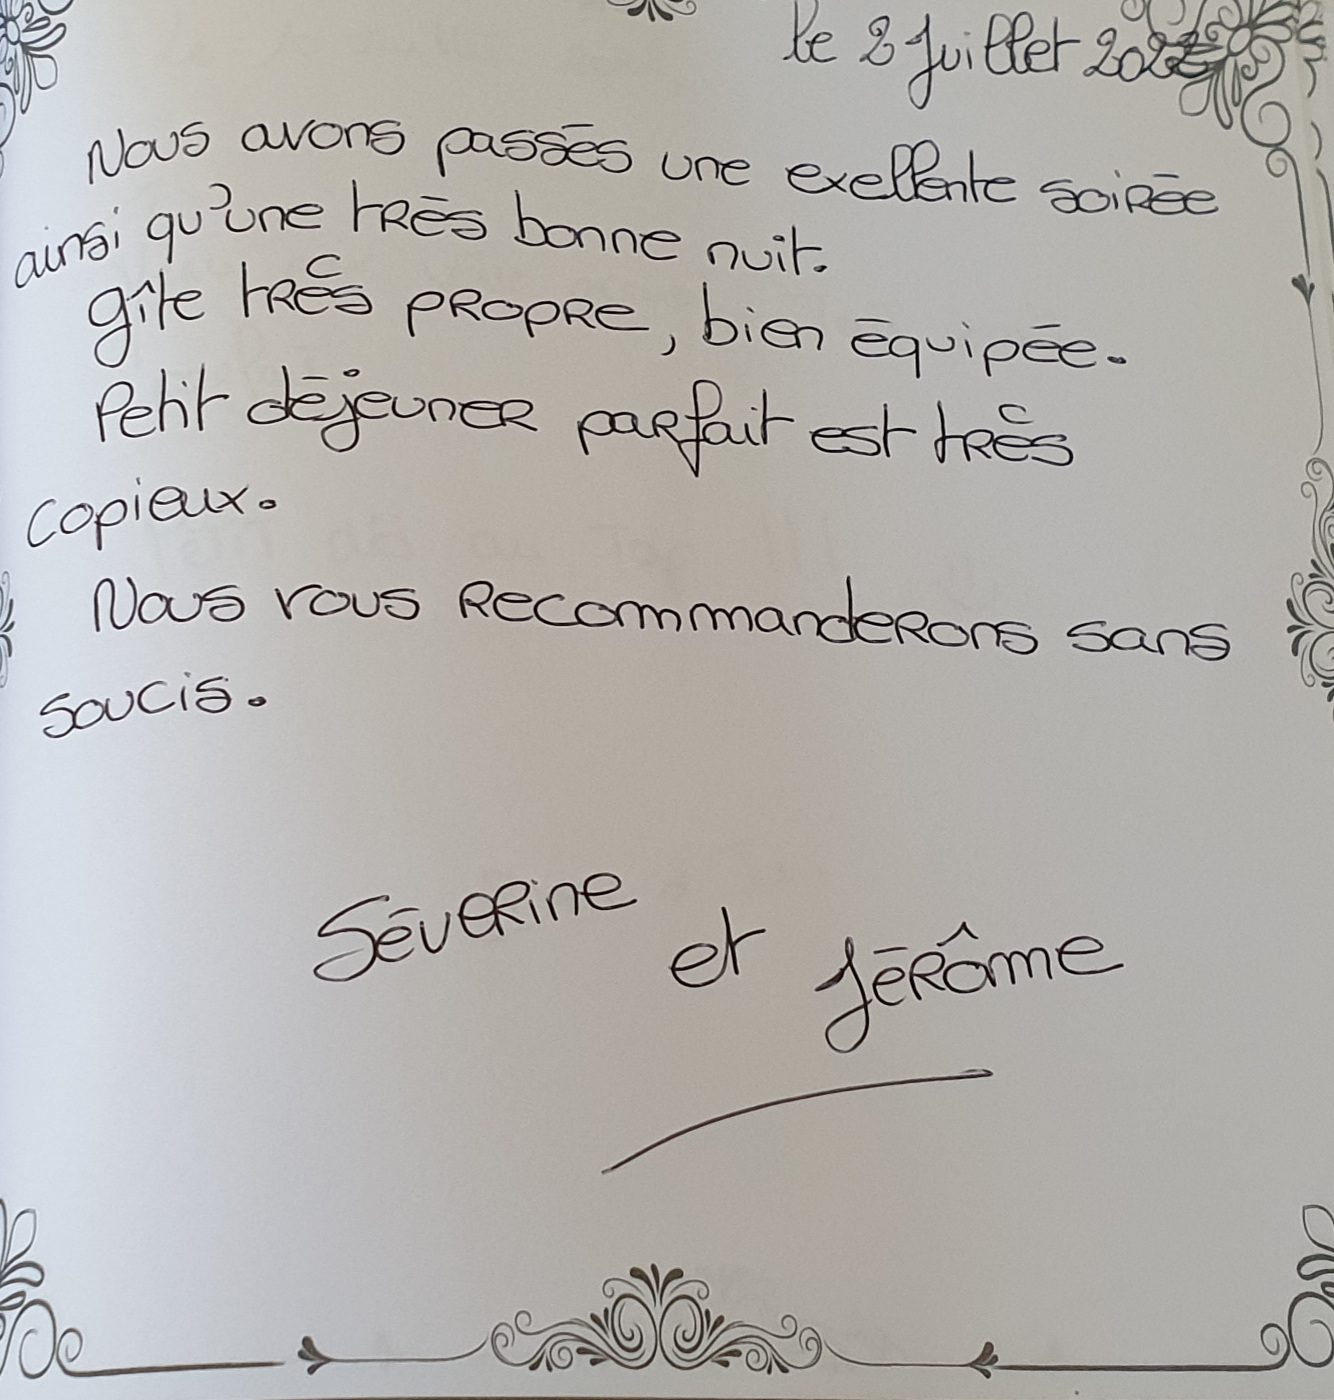 le 2 Juillet 2022
Nous avons passés une exellente soirée
ainsi qu'une très bonne nuit.
gîte très propre, bien équipée.
Petit déjeuner parfait est très
copieux.
Nous vous recommanderons sans
soucis.
Séverine et Jérôme